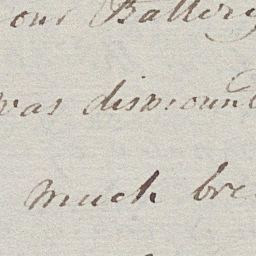 our Battery
was dismount
much bre